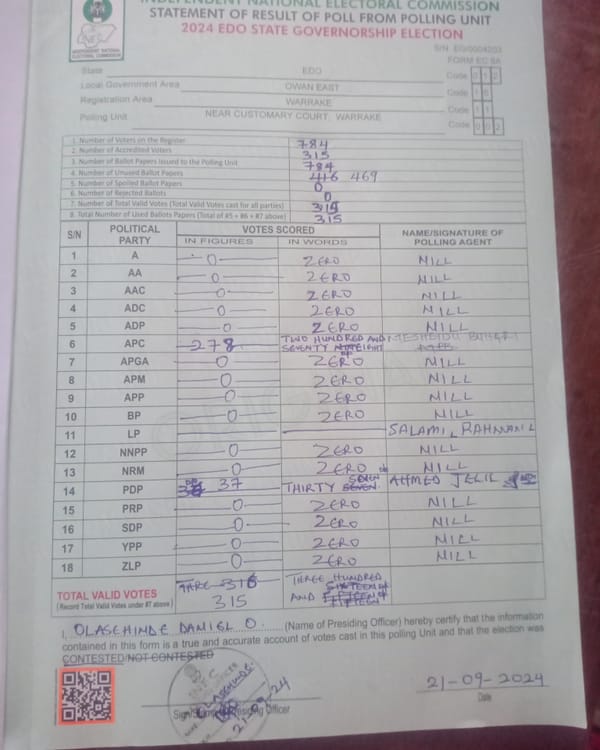 INDEPENDENT NATIONAL ELECTORAL COMMISSION
STATEMENT OF RESULT OF POLL FROM POLLING UNIT
2024 EDO STATE GOVERNORSHIP ELECTION
S/N EG/0004203
FORM EC 8A
State EDO Code 0 1 2
Local Government Area OWAN EAST Code 1 6
Registration Area WARRAKE Code 1 1
Polling Unit NEAR CUSTOMARY COURT, WARRAKE Code 0 0 2
1. Number of Voters on the Register 784
2. Number of Accredited Voters 315
3. Number of Ballot Papers Issued to the Polling Unit 784
4. Number of Unused Ballot Papers 469
5. Number of Spoiled Ballot Papers 0
6. Number of Rejected Ballots 0
7. Number of Total Valid Votes (Total Valid Votes cast for all parties) 315
8. Total Number of Used Ballots Papers (Total of #5 + #6 + #7 above) 315
S/N POLITICAL PARTY VOTES SCORED NAME/SIGNATURE OF POLLING AGENT
IN FIGURES IN WORDS
1 A 0 ZERO NILL
2 AA 0 ZERO NILL
3 AAC 0 ZERO NILL
4 ADC 0 ZERO NILL
5 ADP 0 ZERO NILL
6 APC 278 TWO HUNDRED AND SEVENTY EIGHT
7 APGA 0 ZERO NILL
8 APM 0 ZERO NILL
9 APP 0 ZERO NILL
10 BP 0 ZERO NILL
11 LP SALAMI
12 NNPP 0 ZERO NILL
13 NRM 0 ZERO NILL
14 PDP 37 THIRTY SEVEN AHMED JELIL
15 PRP 0 ZERO NILL
16 SDP 0 ZERO NILL
17 YPP 0 ZERO NILL
18 ZLP 0 ZERO NILL
TOTAL VALID VOTES 316 THREE HUNDRED
(Record Total Valid Votes under #7 above) 315 AND SIXTEEN FIFTEEN FIFTEEN
I, OLASEHINDE DANIEL O. (Name of Presiding Officer) hereby certify that the information
contained in this form is a true and accurate account of votes cast in this polling Unit and that the election was
CONTESTED/NOT CONTESTED
21-09-24
21-09-2024
Sign/Stamp of Presiding Officer Date